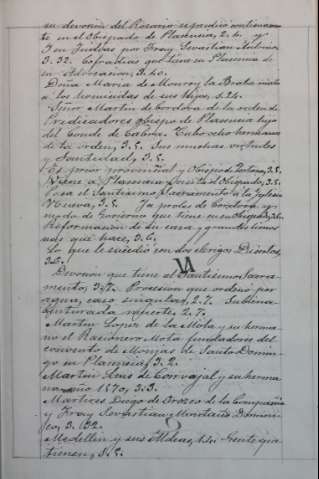 su devoción del Rosario
te en el Obispado de Plasencia, 2.4. y
Fray Sevastian
3.32. Cofradias que tiene en Plasencia de
su Advocacion, 3.40.
Doña Maria de Monroy la Braba mata
a los homicidas de sus hijos, 1.24.
Fray Martin de Cordova de la orden de
Predicadores obispo de Plasencia hijo
del Conde de Cabra. Tubo ocho hermanos
de su orden, 3.5. Sus muchas virtudes
y Santidad, 3.5.
Es prior provincial y Obispo de Tortosa, 3.5.
Viene a Plasencia 3.5.
Pasa el Santisimo Sacramento a la Yglesia
Nueva, 3.5. de Cordova
de Govierno que tiene en el Obispado, 3.6.
Reformacion de su casa, y grandes limos
nas que hace, 3.6.
Lo que le sucedio con dos clerigos
3.6.
M
Devocion que tiene al Santisimo Sacra
mento, 3.7. Procesion que ordenó por
agua, caso singular, 2.7. Su buena
2.7.
Martin Lopez de la Mota y su herma
no el Racionero Mota fundadores del
convento de Monjas de Santo Domin
go en Plasencia, 3.2.
Martin Arias de Carvajal y su hermana
año 1570, 3.3.
Martires Diego de Orozco de la Compañia
y Fray Sevastian Montañes Domini
co, 3.32.
Medellin y sus Aldeas, 1.5. gente que
tienen, 3.5.